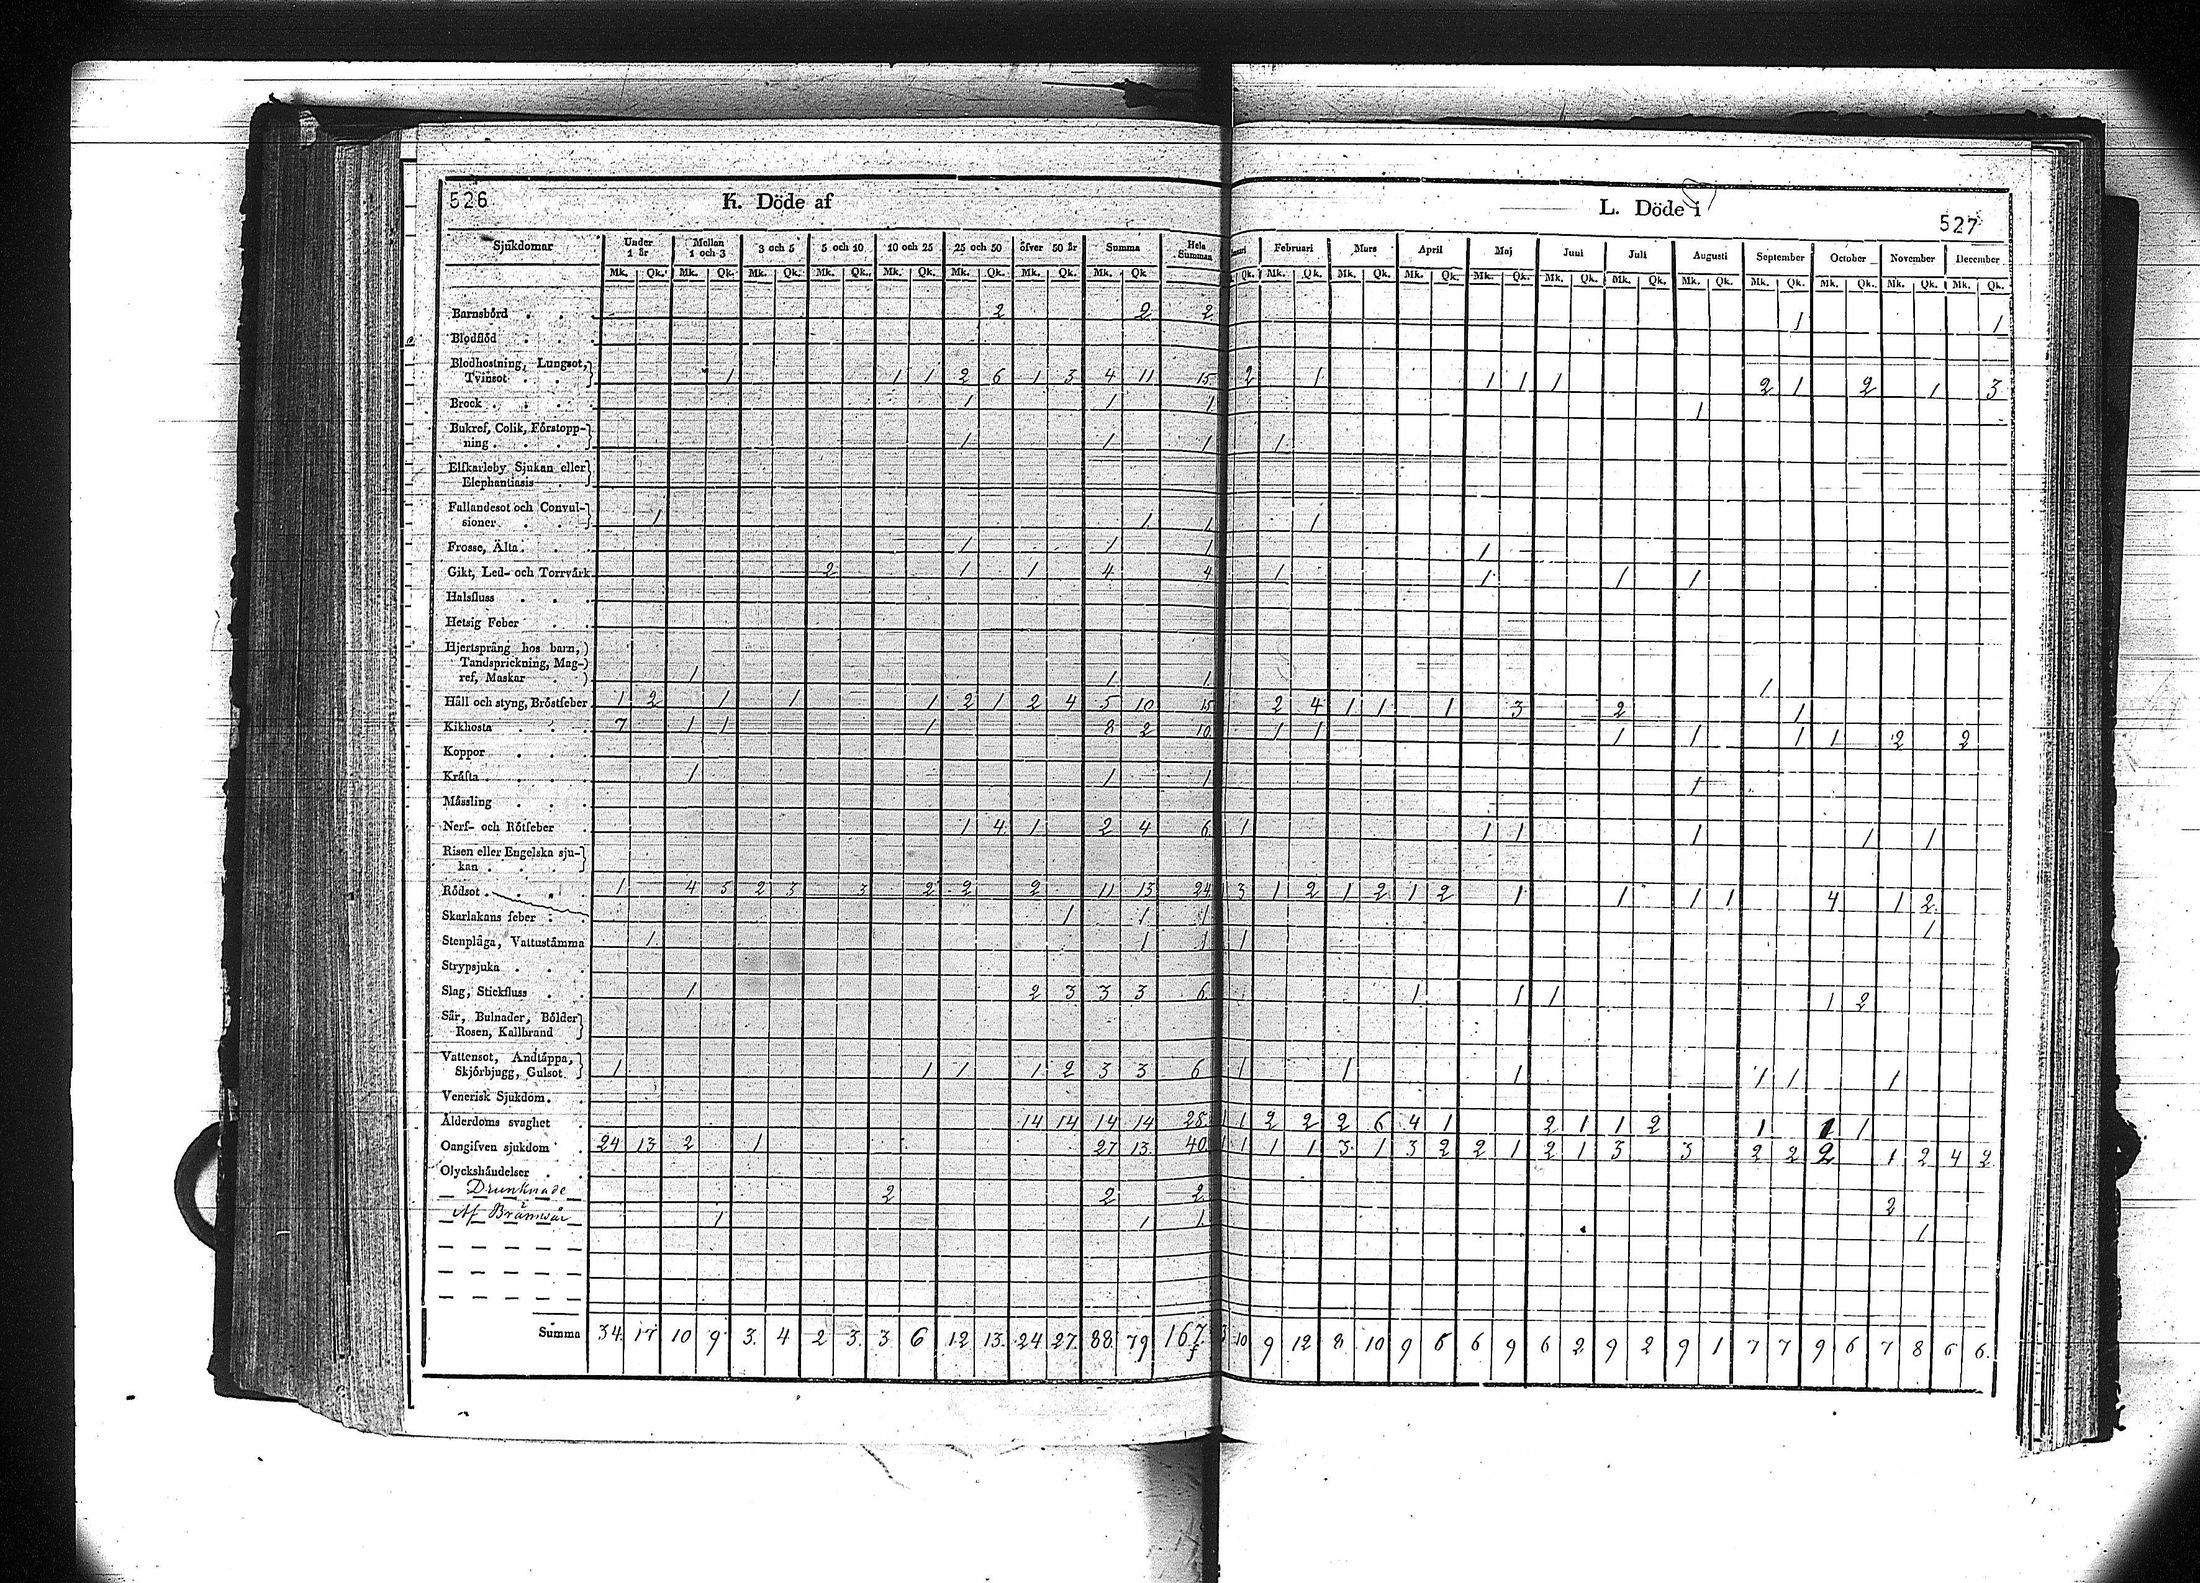 526
K. Döde af
L. Döde i
527
Sjukdomar Under 1 år Mellan 1 och 3 3 och 5 5 och 10 10 och 25 25 och 50 öfver 50 år Summa Hela Summan Februari Mars April Maj Juni Juli Augusti September October November December
Mk. Qk. Mk. Qk. Mk. Qk. Mk. Qk. Mk. Qk. Mk. Qk. Mk. Qk. Mk. Qk. Qk. Mk. Qk. Mk. Qk. Mk. Qk. Mk. Qk. Mk. Qk. Mk. Qk. Mk. Qk. Mk. Qk. Mk. Qk. Mk. Qk. Mk. Qk.
Barnsbörd 2 2 2 1 1
Blodflöd
Blodhostning, Lungsot,
Tvinsot 1 1 1 2 6 1 3 4 11 15 2 1 1 1 1 2 1 2 1 3
Brock 1 1 1 1
Bukref, Colik, Förstopp-
ning 1 1 1 1
Elfkarleby Sjukan eller
Elephantiasis
Fallandesot och Convul-
sioner 1 1 1 1
Frosse, Älta 1 1 1 1
Gikt, Led- och Torrvärk 2 1 1 4 4 1 1 1 1
Halsfluss
Hetsig Feber
Hjertsprång hos barn,
Tandsprickning, Mag-
ref, Maskar 1 1 1 1
Håll och styng, Bröstfeber 1 2 1 1 1 2 1 2 4 5 10 15 2 4 1 1 1 3 2 1
Kikhosta 7 1 1 1 8 2 10 1 1 1 1 1 1 2 2
Koppor
Kräfta 1 1 1 1
Mässling
Nerf- och Rötfeber 1 4 1 2 4 6 1 1 1 1 1 1
Risen eller Engelska sju-
kan
Rödsot 1 4 5 2 3 3 2 2 2 11 13 24 1 3 1 2 1 2 1 2 1 1 1 1 4 1 2
Skarlakans feber 1 1 1 1
Stenplåga, Vattustämma 1 1 1 1
Strypsjuka
Slag, Stickfluss 1 2 3 3 3 6 1 1 1 1 2
Sår, Bulnader, Bölder
Rosen, Kallbrand
Vattensot, Andtäppa,
Skjörbjugg, Gulsot 1 1 1 1 2 3 3 6 1 1 1 1 1 1
Venerisk Sjukdom
Ålderdoms svaghet 14 14 14 14 28 1 1 2 2 2 6 4 1 2 1 1 2 1 1 1
Oangifven sjukdom 24 13 2 1 27 13 40 1 1 1 1 3 1 3 2 2 1 2 1 3 3 2 2 2 1 2 4 2
Olyckshändelser
Drunknade 2 2 2 2
Af Brännsår 1 1 1 1
Summa 34 17 10 9 3 4 2 3 3 6 12 13 24 27 88 79 167 3 10 9 12 8 10 9 6 6 9 6 2 9 2 9 1 7 7 9 6 7 8 6 6